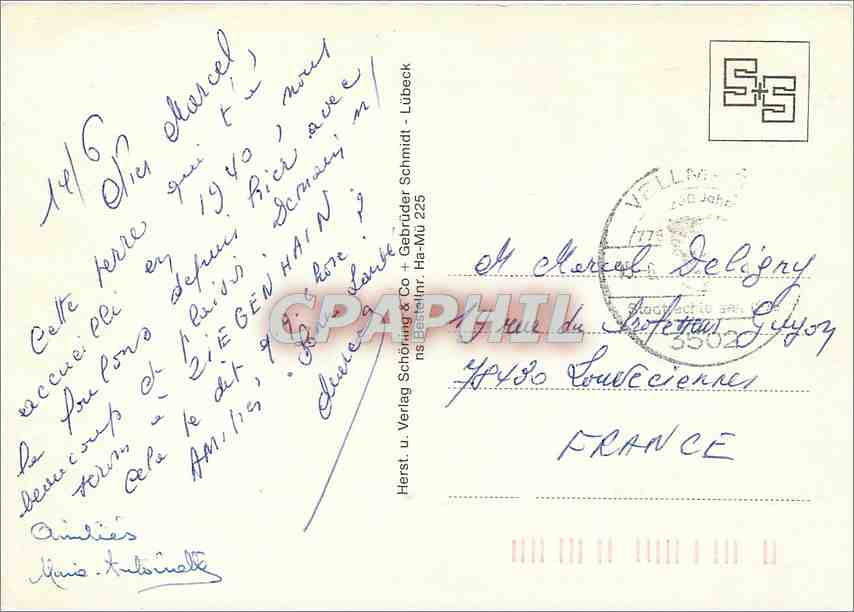 14/6
Marcel,
Cette terre qui t'a
accueilli en 1940, nous
la foulons depuis hier avec
beaucoup de plaisir. Demain n/
serons à ZIEGENHAIN
Cela te dit qq. chose ?
AMitiés, Bonne Santé
Amitiés
Marie-Antoinette
Herst. u. Verlag Schöning & Co + Gebrüder Schmidt - Lübeck
ns Bestellnr. Ha-Mü 225
CPAPHIL
S+S
VELLM
Jahre
Stadtrechte
3502
M Marcel Deligny
17 rue du Professeur Guyon
78430 Louveciennes
FRANCE